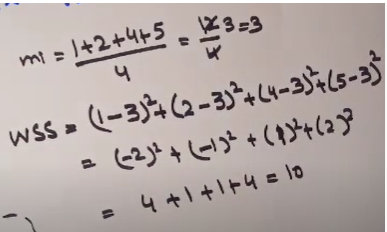 mi = 1+2+4+5/4 = 12/4 3 = 3
WSS = (1-3)²+(2-3)²+(4-3)²+(5-3)²
= (-2)² + (-1)² + (1)²+(2)²
= 4+1+1+4 = 10